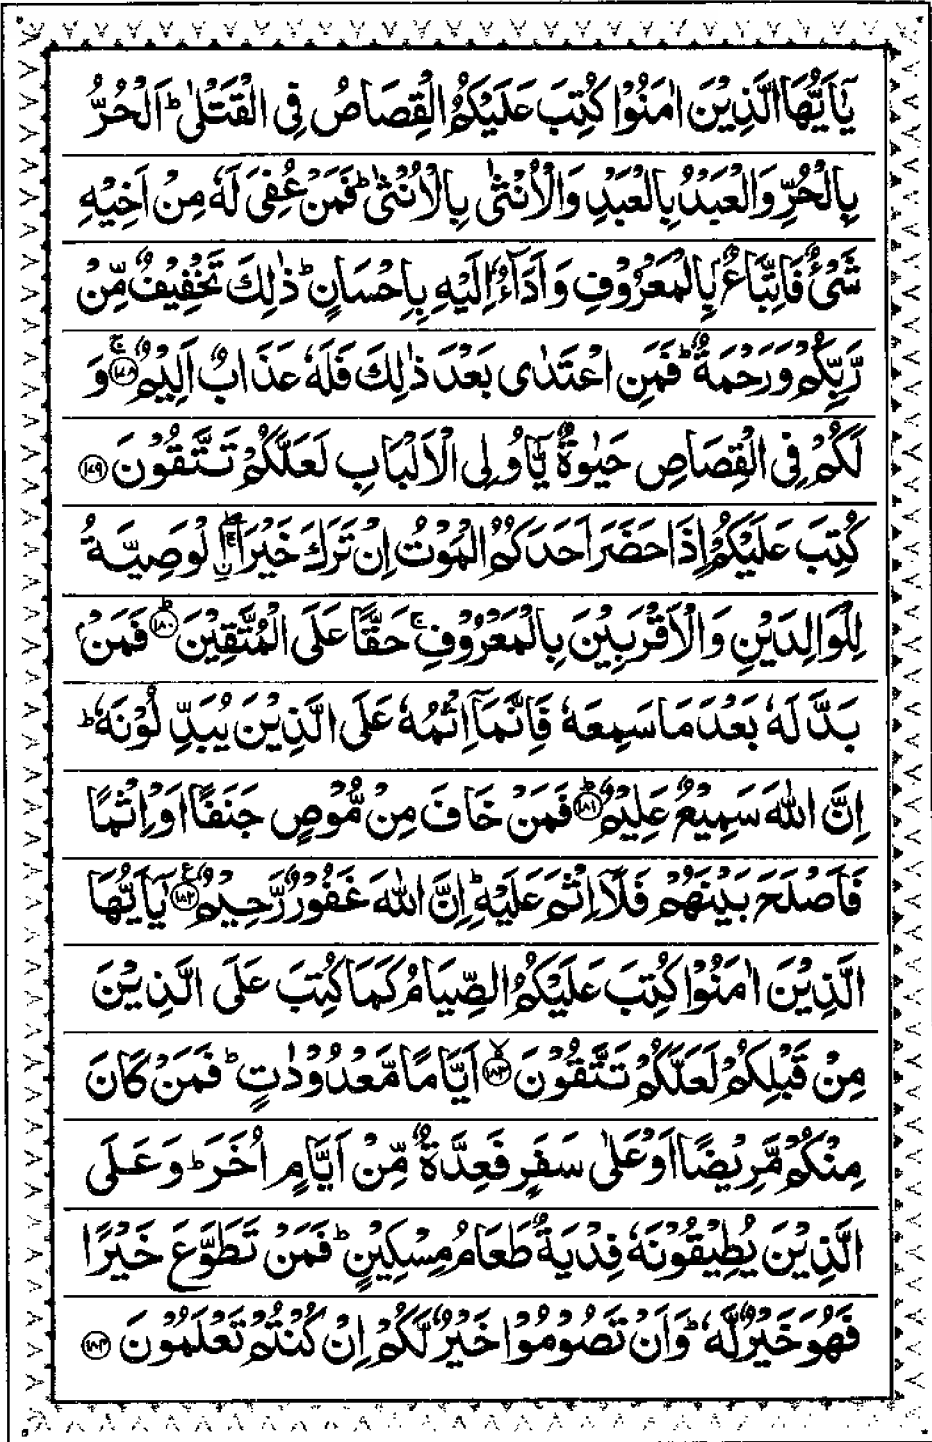 يٰٓاَيُّهَا الَّذِيْنَ اٰمَنُوْا كُتِبَ عَلَيْكُمُ الْقِصَاصُ فِى الْقَتْلٰىؕ اَلْحُرُّ
بِالْحُرِّ وَالْعَبْدُ بِالْعَبْدِ وَالْاُنْثٰى بِالْاُنْثٰىؕ فَمَنْ عُفِىَ لَهٗ مِنْ اَخِيْهِ
شَىْءٌ فَاتِّبَاعٌۢ بِالْمَعْرُوْفِ وَاَدَآءٌ اِلَيْهِ بِاِحْسَانٍؕ ذٰلِكَ تَخْفِيْفٌ مِّنْ
رَّبِّكُمْ وَرَحْمَةٌؕ فَمَنِ اعْتَدٰى بَعْدَ ذٰلِكَ فَلَهٗ عَذَابٌ اَلِيْمٌۚ ﴿۱۷۸﴾ وَ
لَكُمْ فِى الْقِصَاصِ حَيٰوةٌ يّٰٓاُولِى الْاَلْبَابِ لَعَلَّكُمْ تَتَّقُوْنَ ﴿۱۷۹﴾
كُتِبَ عَلَيْكُمْ اِذَا حَضَرَ اَحَدَكُمُ الْمَوْتُ اِنْ تَرَكَ خَيْرَاۖۚ ا۟لْوَصِيَّةُ
لِلْوَالِدَيْنِ وَالْاَقْرَبِيْنَ بِالْمَعْرُوْفِۚ حَقًّا عَلَى الْمُتَّقِيْنَؕ ﴿۱۸۰﴾ فَمَنْۢ
بَدَّلَهٗ بَعْدَ مَا سَمِعَهٗ فَاِنَّمَآ اِثْمُهٗ عَلَى الَّذِيْنَ يُبَدِّلُوْنَهٗؕ
اِنَّ اللّٰهَ سَمِيْعٌ عَلِيْمٌؕ ﴿۱۸۱﴾ فَمَنْ خَافَ مِنْ مُّوْصٍ جَنَفًا اَوْ اِثْمًا
فَاَصْلَحَ بَيْنَهُمْ فَلَآ اِثْمَ عَلَيْهِؕ اِنَّ اللّٰهَ غَفُوْرٌ رَّحِيْمٌ ﴿۱۸۲﴾ع يٰٓاَيُّهَا
الَّذِيْنَ اٰمَنُوْا كُتِبَ عَلَيْكُمُ الصِّيَامُ كَمَا كُتِبَ عَلَى الَّذِيْنَ
مِنْ قَبْلِكُمْ لَعَلَّكُمْ تَتَّقُوْنَۙ ﴿۱۸۳﴾ اَيَّامًا مَّعْدُوْدٰتٍؕ فَمَنْ كَانَ
مِنْكُمْ مَّرِيْضًا اَوْ عَلٰى سَفَرٍ فَعِدَّةٌ مِّنْ اَيَّامٍ اُخَرَؕ وَعَلَى
الَّذِيْنَ يُطِيْقُوْنَهٗ فِدْيَةٌ طَعَامُ مِسْكِيْنٍؕ فَمَنْ تَطَوَّعَ خَيْرًا
فَهُوَ خَيْرٌ لَّهٗؕ وَاَنْ تَصُوْمُوْا خَيْرٌ لَّكُمْ اِنْ كُنْتُمْ تَعْلَمُوْنَ ﴿۱۸۴﴾